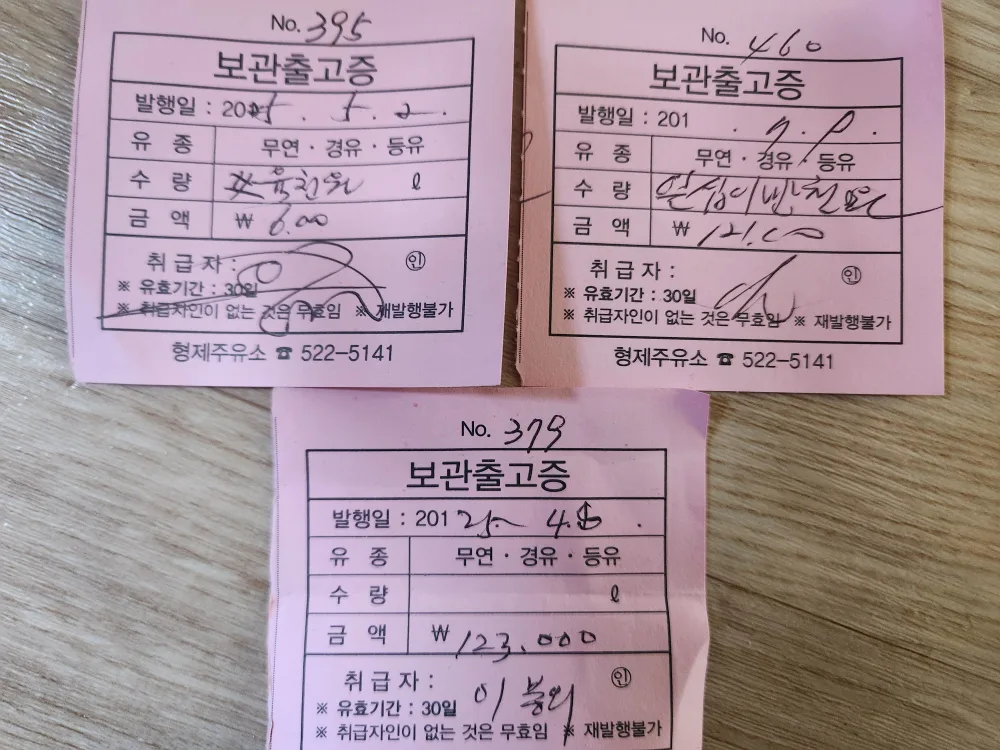 No. 395
보관출고증
발행일 : 2025. 5. 2.
유 종 무연 · 경유 · 등유
수 량 육천원 ℓ
금 액 ₩ 6.000
취 급 자 : 인
※ 유효기간 : 30일
※ 취급자인이 없는 것은 무효임 ※ 재발행불가
형제주유소 ☎ 522-5141
No. 460
보관출고증
발행일 : 201 . 7. 8.
유 종 무연 · 경유 · 등유
수 량
금 액 ₩
취 급 자 : 인
※ 유효기간 : 30일
※ 취급자인이 없는 것은 무효임 ※ 재발행불가
형제주유소 ☎ 522-5141
No. 379
보관출고증
발행일 : 201 25. 4. .
유 종 무연 · 경유 · 등유
수 량 ℓ
금 액 ₩ 123.000
취 급 자 : 이 인
※ 유효기간 : 30일
※ 취급자인이 없는 것은 무효임 ※ 재발행불가